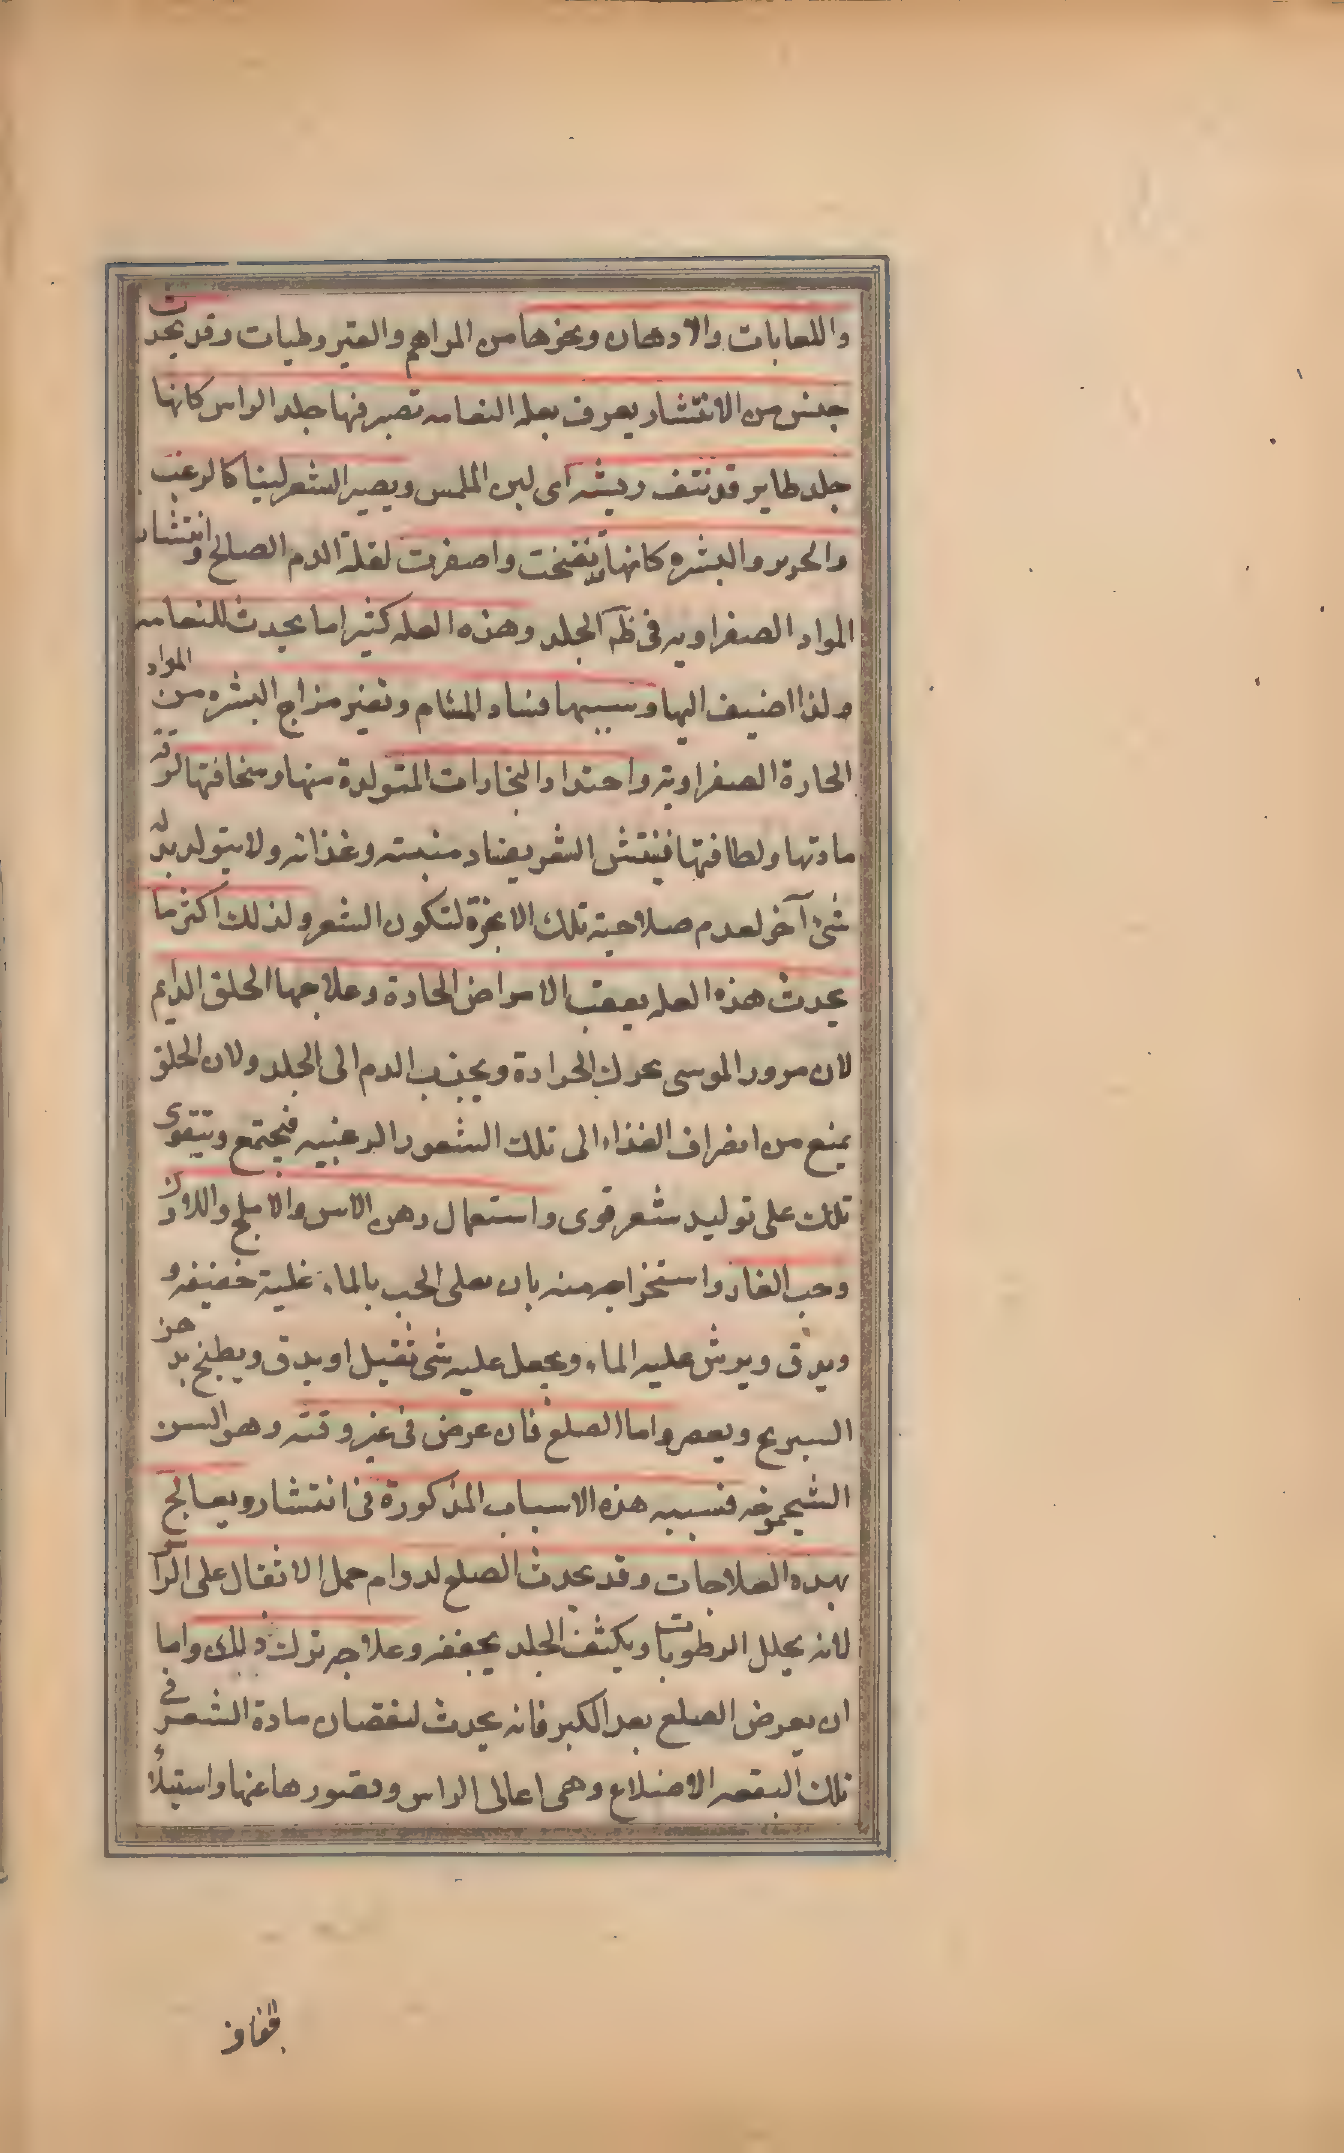 واللعابات والادهان ونحوها من المراهم والقيروطيات وقد يحدث
جنس من الانتشار يعرف بعله النعامه تصير فيها جلد الراس كانها
جلد طاير قد نتف ريشه اى لين الملمس ويصير الشعر لينا كالزغب
والحرير والبشره كانها قد نفخت واصفرت لقلة الدم الصالح وانتشار
المواد الصفراويه فى ظاهر الجلد وهذه العله كثيرا ما يحدث للنعامه
ولذا اضيف اليها وسببها فساد المسام وتغير مزاج البشره من المواد
الحارة الصفراوية واحتداد البخارات المتولدة منها وسخافتها لرقة
مادتها ولطافتها فينتثر الشعر بفساد منبته وغذائه ولا يتولد بدله
شئ آخر لعدم صلاحية تلك الابخرة لتكون الشعر ولذلك اكثر ما
يحدث هذه العله بعقب الامراض الحادة وعلاجها الحلق الدايم
لان مرور الموسى يحرك الحرارة ويجذب الدم الى الجلد ولان الحلق
يمنع من انصراف الغذاء الى تلك الشعور الزغبيه فيجتمع ويتقوى
تلك على توليد شعر قوى واستعمال دهن الاس والاملج واللاذن
وحب الغار واستخراجه منه بان يغلى الحب بالماء غلية خفيفه و
ويدق ويرش عليه الماء ويجعل عليه شى ثقيل او يدق ويطبخ بدهن
السيرج ويعصر واما الصلع فان عرض فى غير وقته وهو السن
الشيخوخه فسببه هذه الاسباب المذكورة فى انتشار ويعالج
بهذه العلاجات وقد يحدث الصلع لدوام حمل الاثقال على الراس
لانه يحلل الرطوبات ويكثف الجلد يجففه وعلاجه ترك ذلك واما
ان يعرض الصلع بعد الكبر فانه يحدث لنقصان مادة الشعر فى
تلك البقعه الاصلاع وهى اعالى الراس وقصورها عنها واستيلاء